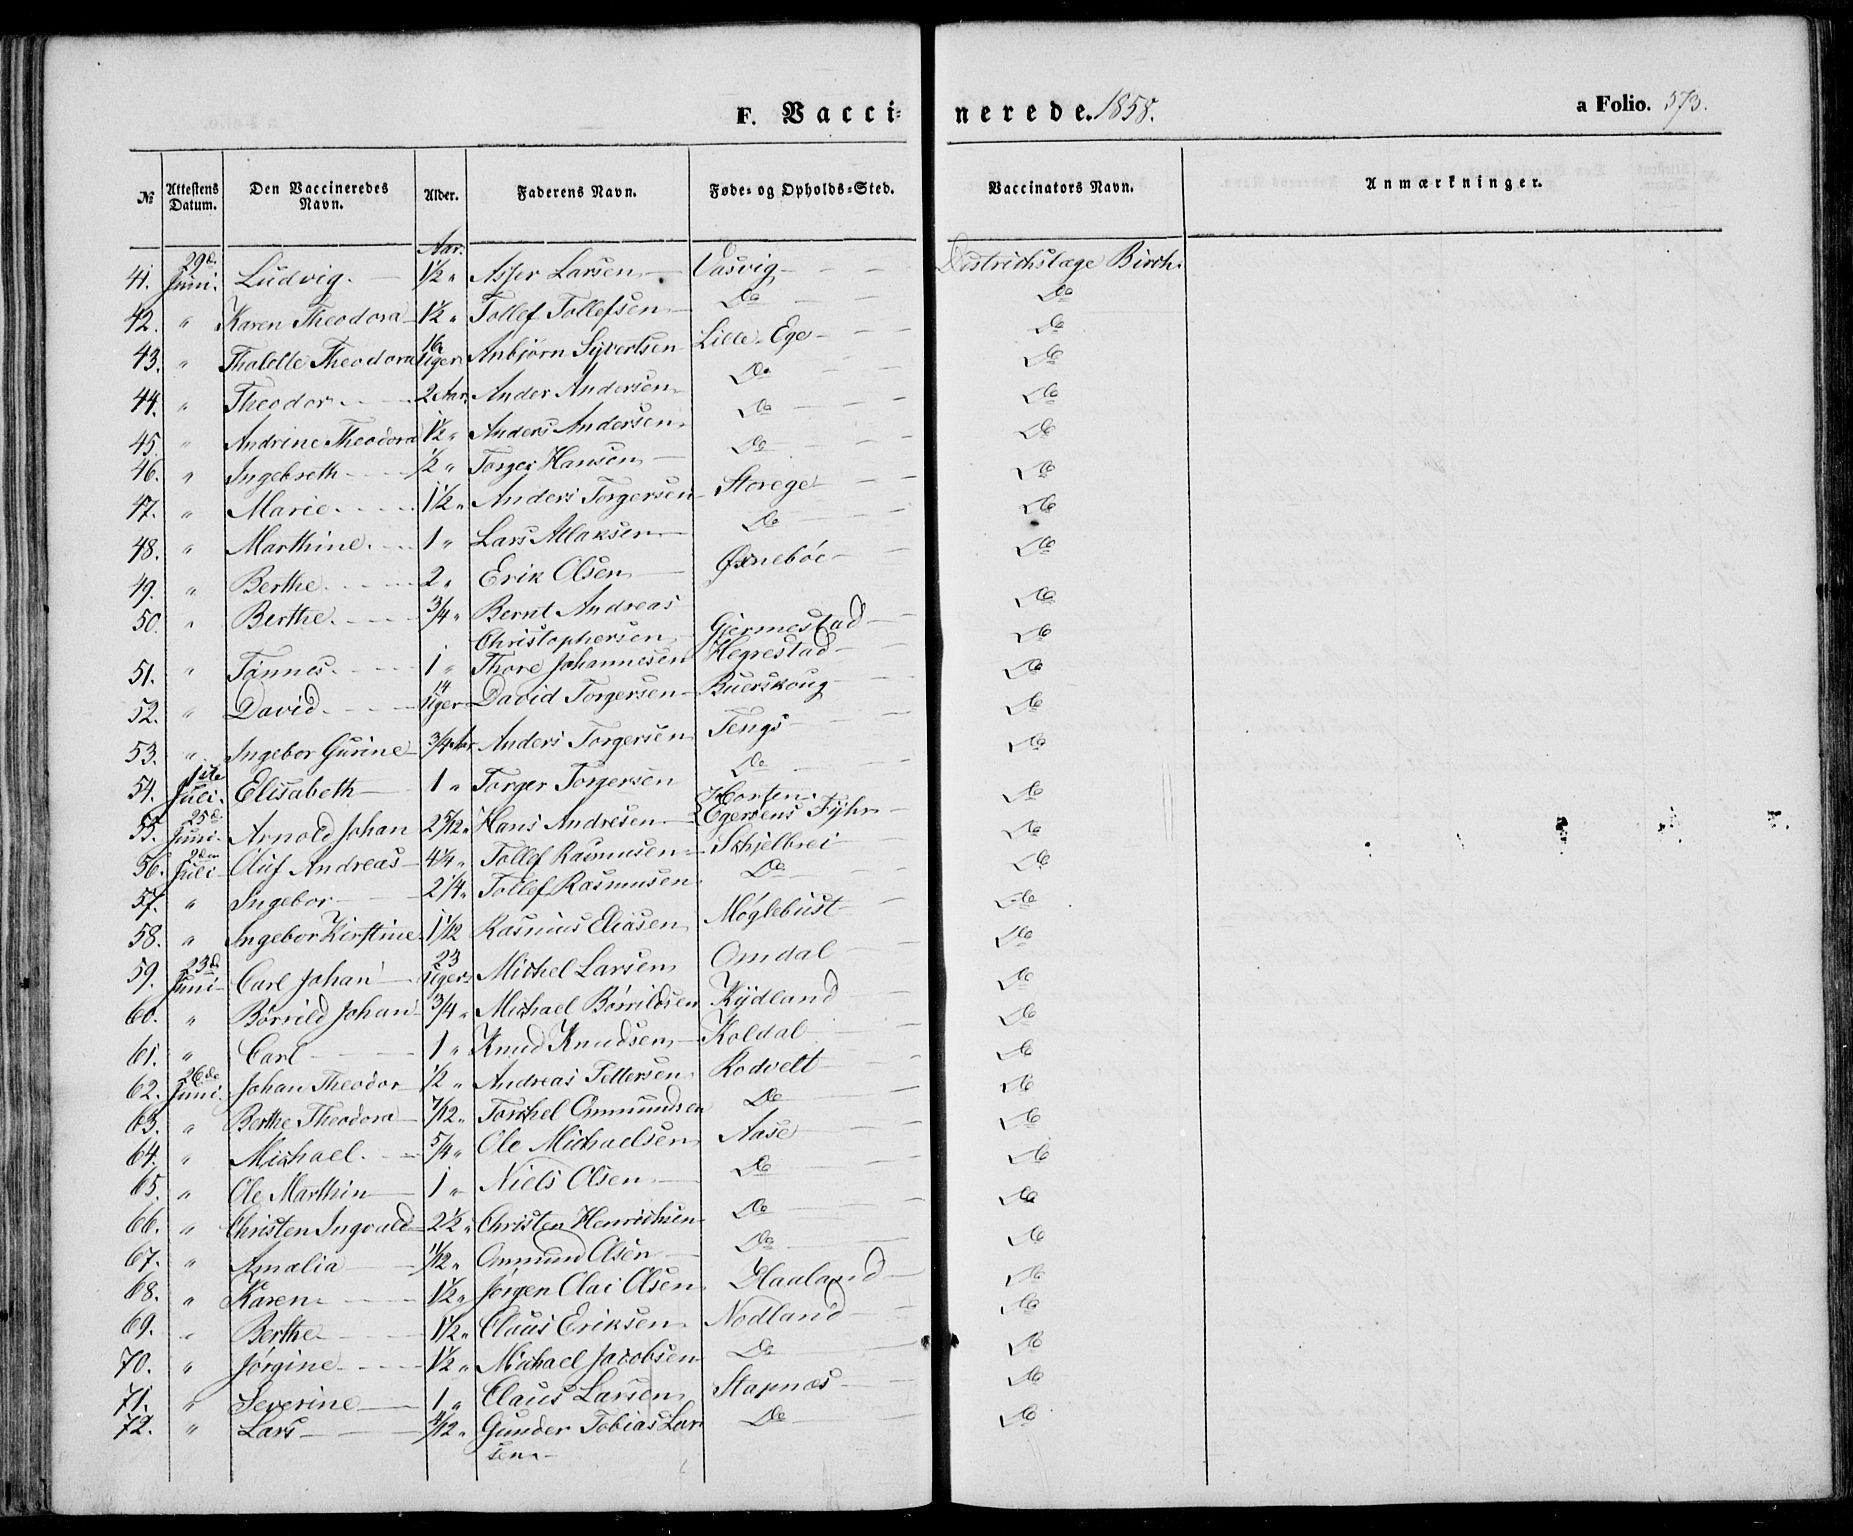 F. Vaccinerede. 1858.
a Folio. 573.
№ Attestens Datum. Den Vaccineredes Navn. Alder. Faderens Navn. Føde- og Opholds-Sted. Vaccinators Navn. Anmærkninger.
41. 29d. Juni. Ludvig. Aar. 1½ " Asser Larsen Vasvig Districtslæge Birch.
42. " Karen Theodora 1½ " Tollef Tollefsen Do Do
43. " Thalette Theodora 16 Uger Anbjørn Syvertsen Lille Ege Do
44. " Theodor 2 Aar. Ander Andersen Do Do
45. " Andrine Theodora 1½ " Anders Andersen Do Do
46. " Ingebreth ½ " Torger Hansen Do Do
47. " Marie 1½ " Anders Torgersen Storege Do
48. " Marthine 1 " Lars Aslaksen Do Do
49. " Berthe 2 " Erik Olsen Øxnebøe Do
50. " Berthe ¾ " Bernt Andreas Christophersen Gjermestad Do
51. " Tønnes 1 " Thore Johannesen Hegrestad Do
52. " David 14 Uger David Torgersen Buerskoug Do
53. " Ingebor Gurine ¾ Aar Anders Torgersen Tengs Do
54. 1ste Juli. Elisabeth 1 " Torger Torgersen Do Do
55. 25d Juni Arnold Johan 2 5/12 " Hans Andresen Horten. Egersens Fyhr Do
56. 2den Juli Oluf Andreas 4¼ " Tollef Rasmusen Skjelbrei Do
57. " Ingebor 2¼ " Tollef Rasmusen Do Do
58. " Ingebor Kirstine 1 1/12 Rasmus Eliasen Møglebust Do
59. 23d Juni Carl Johan 23 Uger Michel Larsen Omdal Do
60. " Børrild Johan ¾ " Michael Børrildsen Kydland Do
61. " Carl 1 " Knud Knudsen Koldal Do
62. 26de Juni. Johan Theodor ½ " Andreas Pettersen Rodvelt Do
63. " Berthe Theodora 7/12 " Torchel Ommundsen Do Do
64. " Michael 5/4 " Ole Michaelsen Aase Do
65. " Ole Marthin 1 " Niels Olsen Do Do
66. " Christen Ingvald 2½ " Christen Henrichsen Do Do
67. " Amalia 11/12 " Ommund Olsen Do Do
68. " Karen 1½ " Jørgen Olai Olsen Haaland Do
69. " Berthe 1½ " Claus Eriksen Nodland Do
70. " Jørgine 1½ " Michael Jacobsen Do Do
71. " Severine 1 " Claus Larsen Stapnæs Do
72. " Lars Gunder Tobias Larsen Do Do